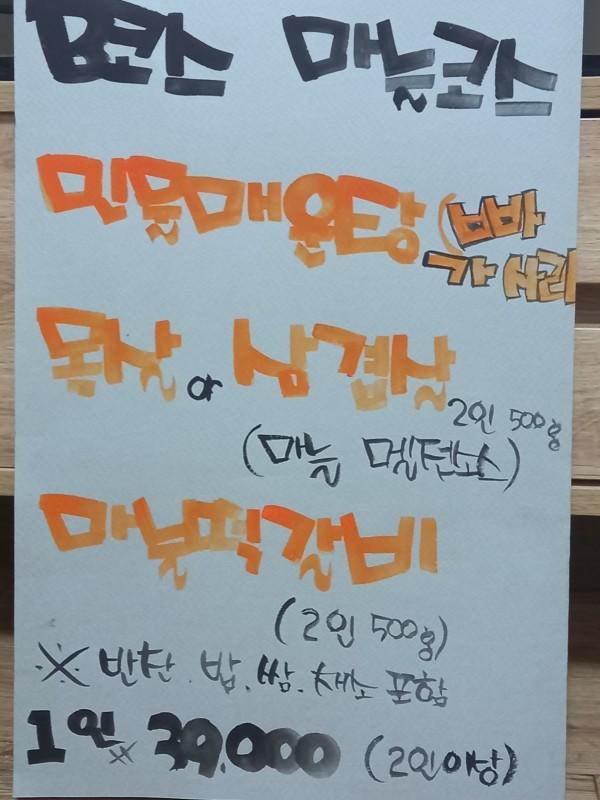 B코스 마늘코스
민물매운탕 (빠
가사리
목살 or 삼겹살
2인 500g
(마늘 멜젓소스)
마늘떡갈비
(2인 500g)
※ 반찬. 밥. 쌈. 채소 포함
1인※ 39,000 (2인이상)